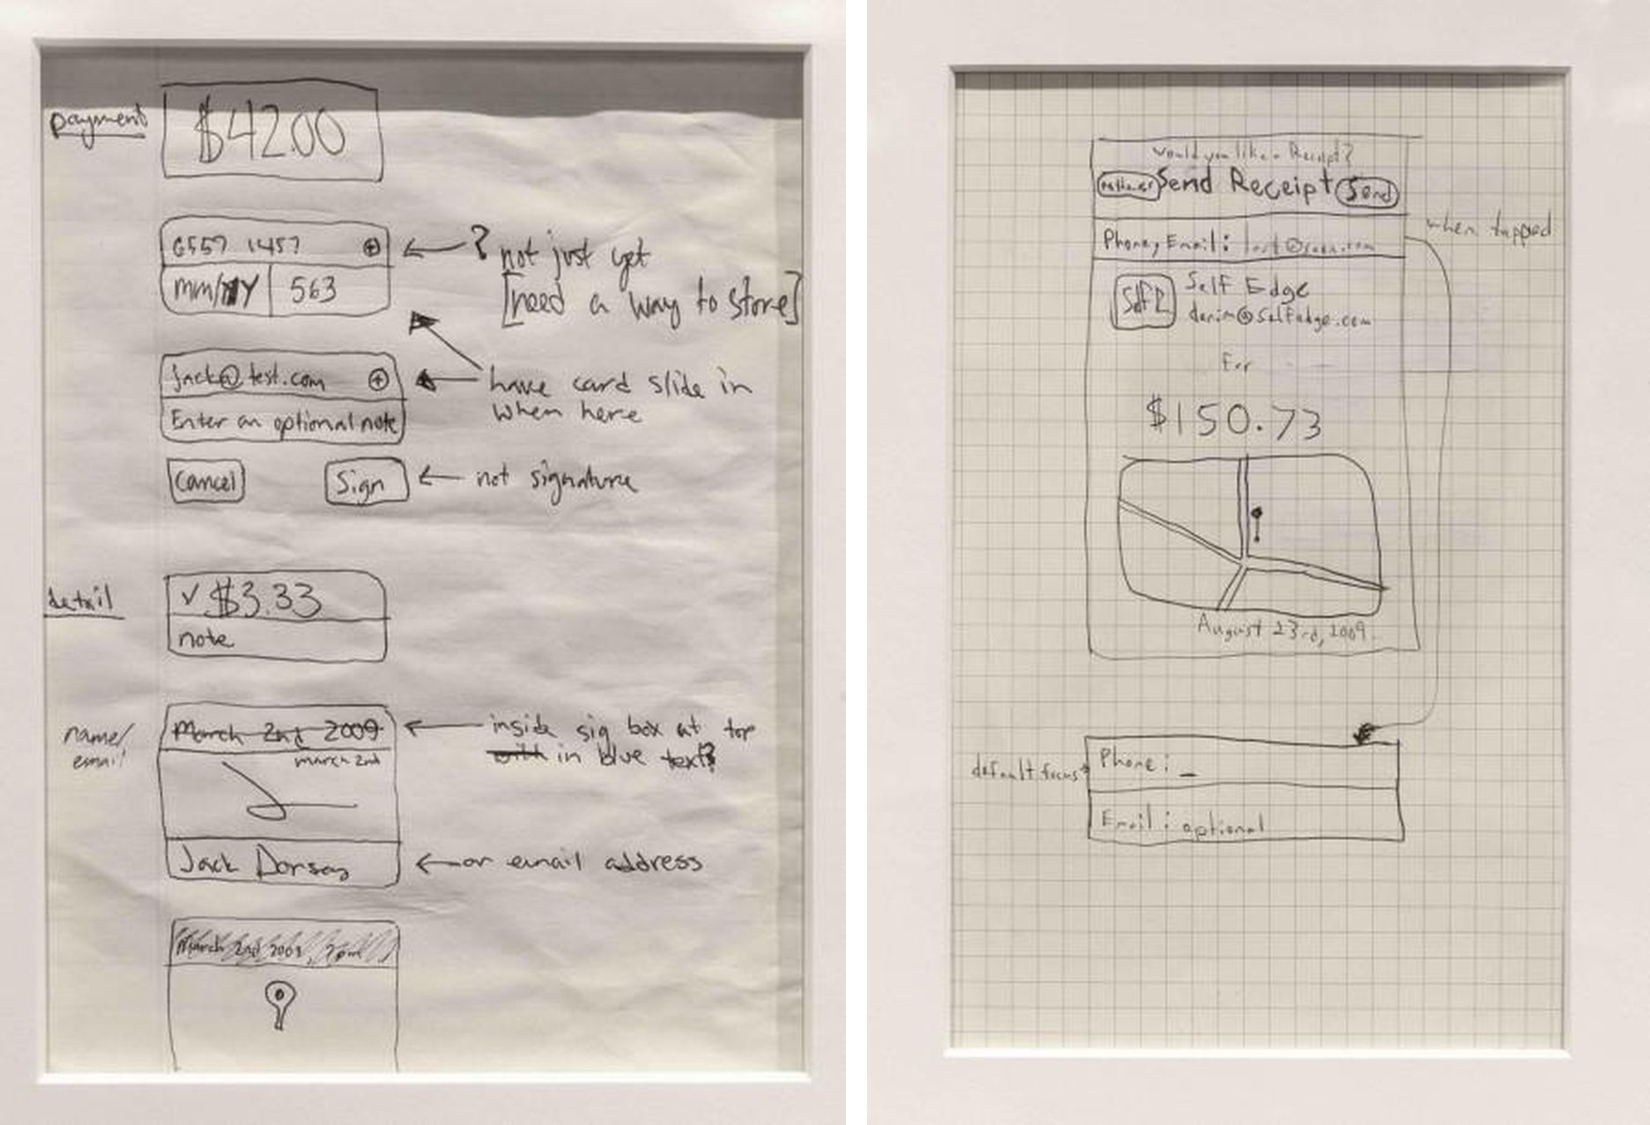 payment
$42.00
6557 1457
? not just yet
[need a way to store]
mm/YY 563
jack@test.com
Enter an optional note
have card slide in
when here
Cancel
Sign
not signature
detail
✓ $3.33
note
name/
email
March 2nd 2009
march 2nd
inside sig box at top
with in blue text?
Jack Dorsey
or email address
March 2nd 2009,
would you like a Receipt?
Send Receipt
Send
when tapped
Phone, Email:
Self E
Self Edge
denim@selfedge.com
For
$150.73
August 23rd, 2009.
default focus
Phone: _
Email: optional